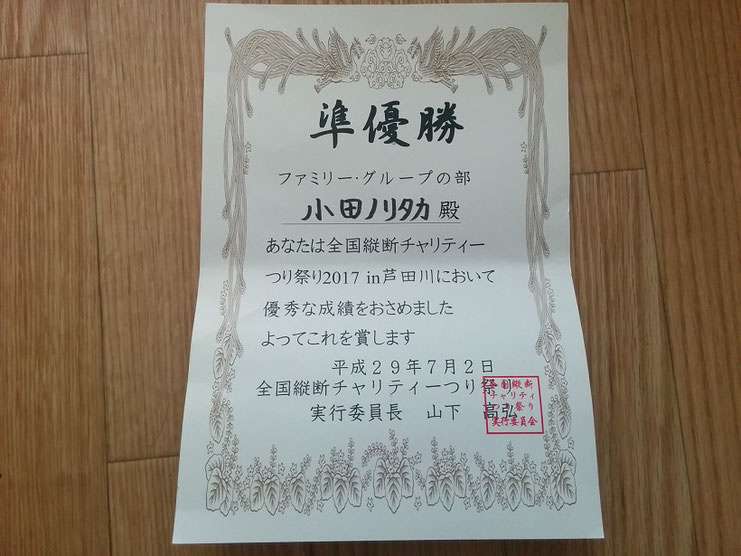 準優勝
ファミリー・グループの部
小田ノリタカ 殿
あなたは全国縦断チャリティー
つり祭り2017 in芦田川において
優秀な成績をおさめました
よってこれを賞します
平成29年7月2日
全国縦断チャリティーつり祭り
実行委員長 山下 高弘
全国縦断
チャリティ
つり祭り
実行委員会